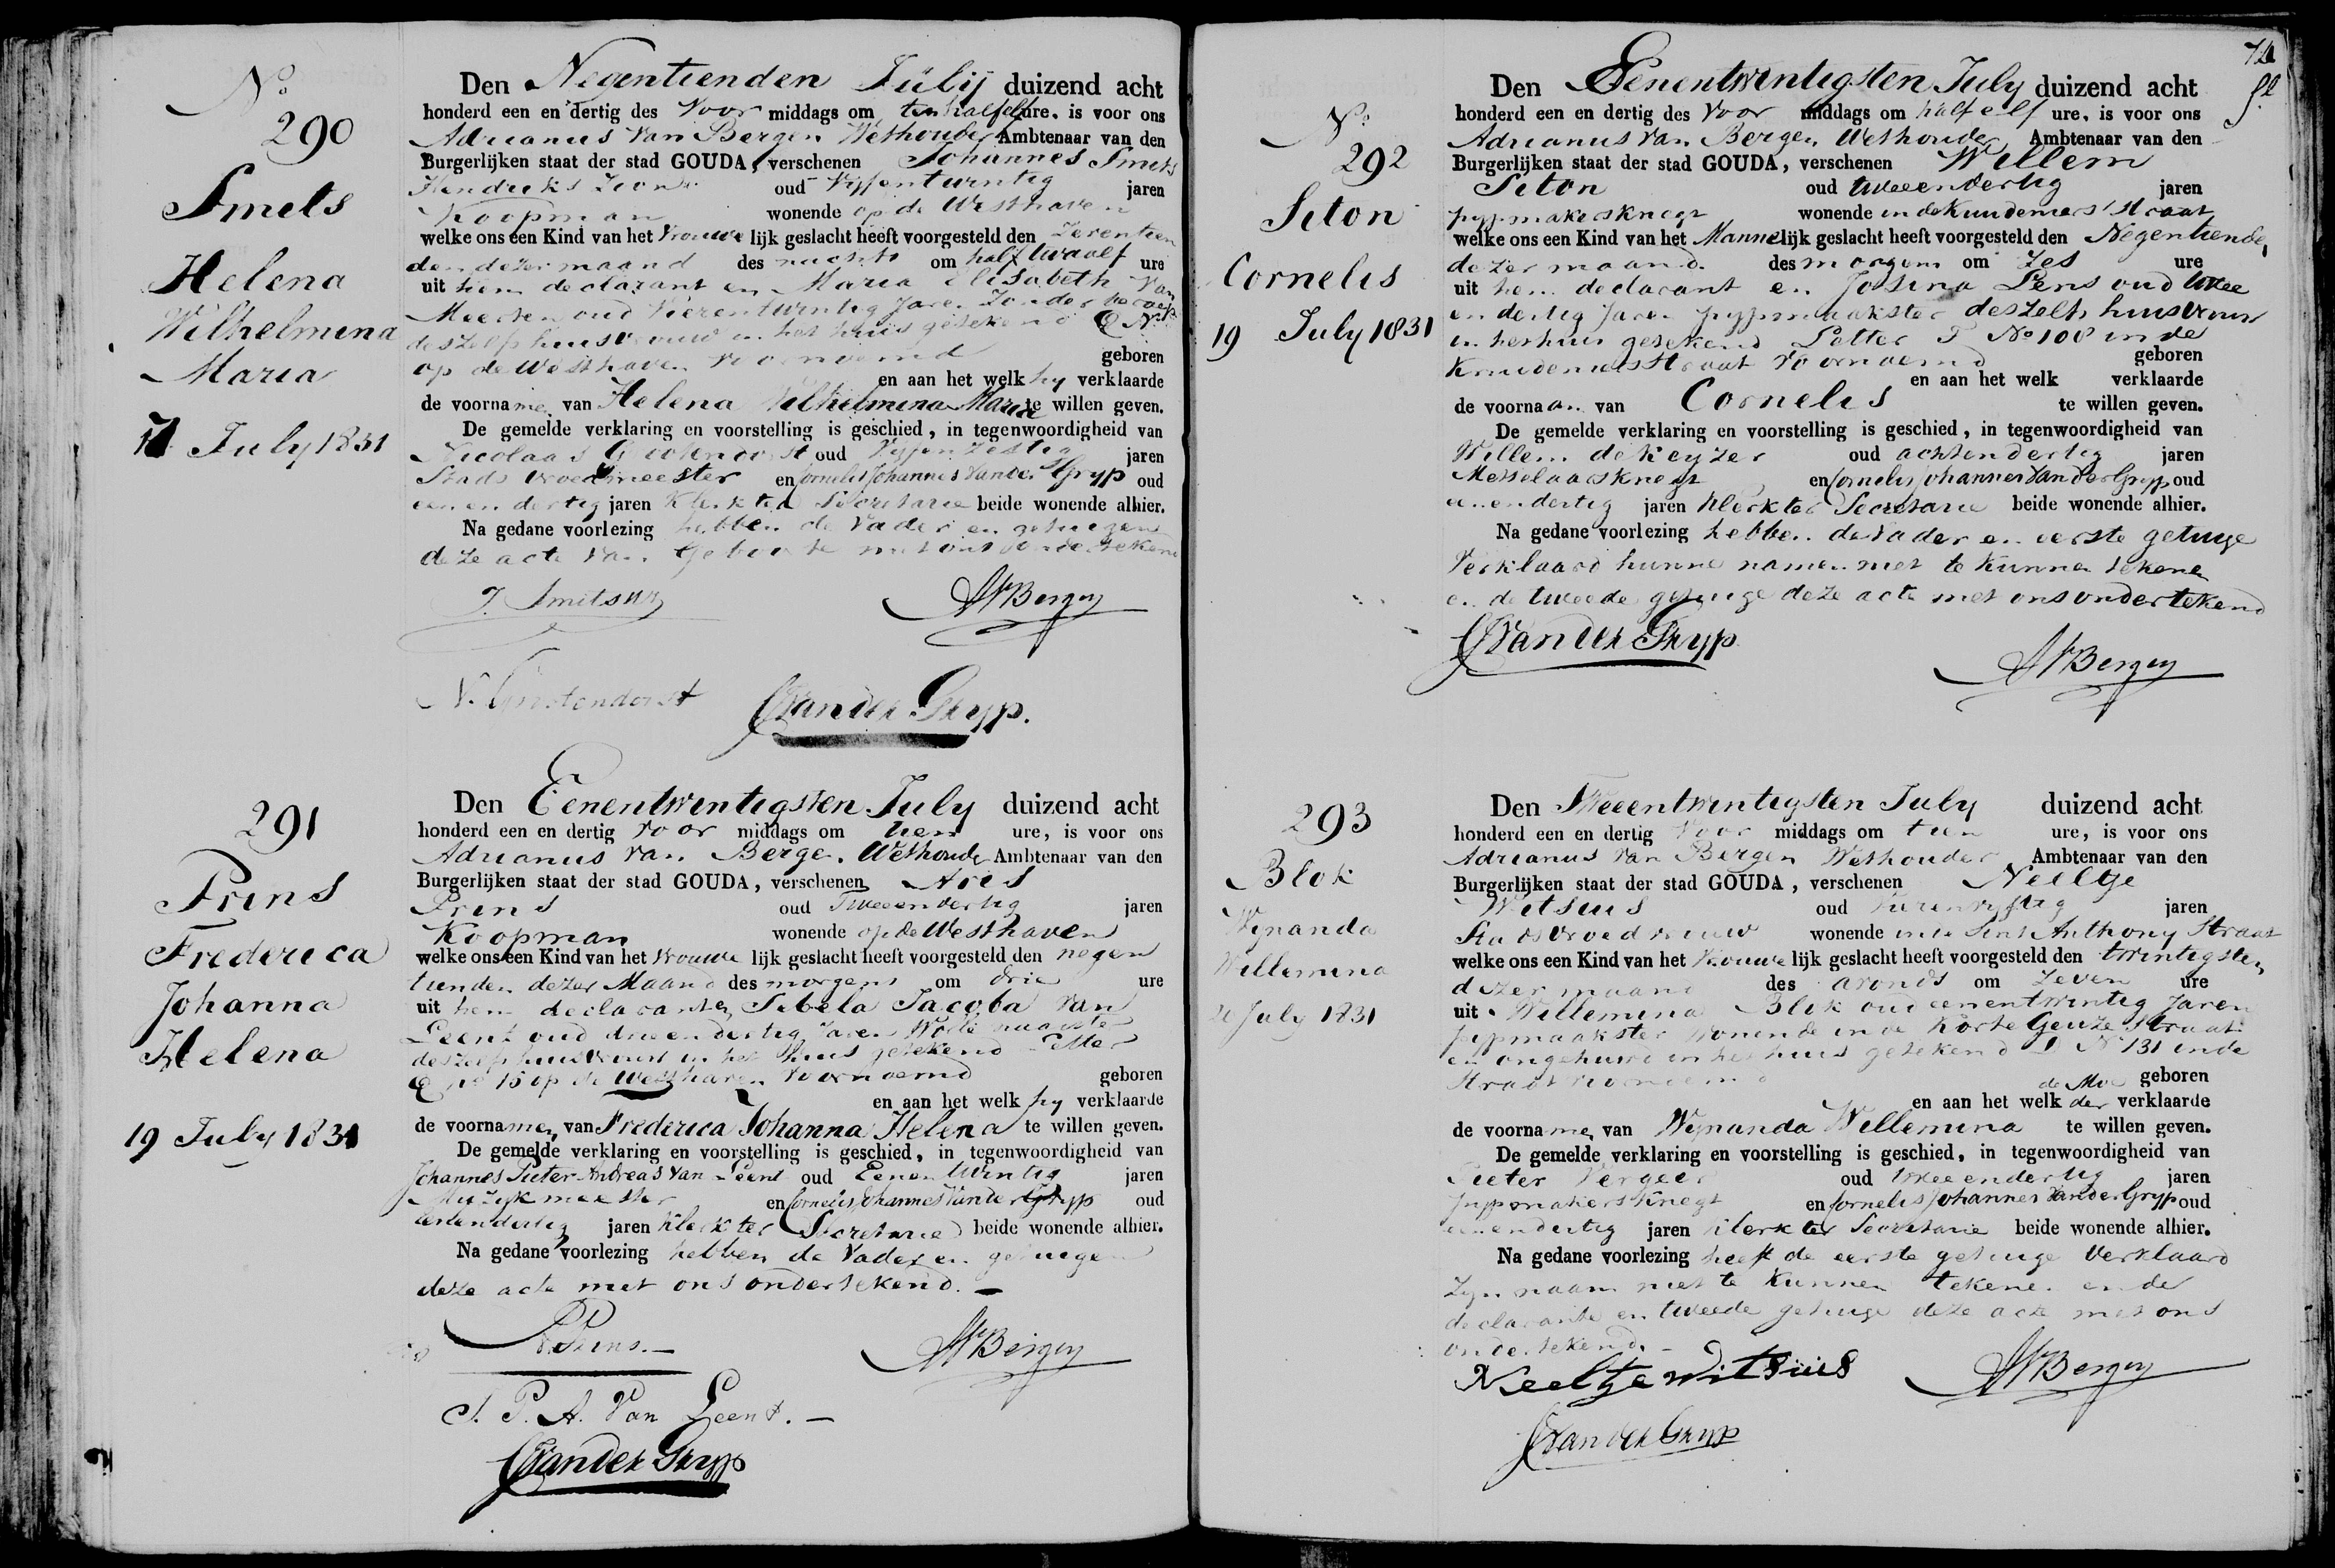 No
290
Smets
Helena
Wilhelmina
Maria
17 July 1831
Den Negentienden Julij duizend acht
honderd een en dertig des voor middags om half elf ure, is voor ons
Adrianus van Bergen Wethouder Ambtenaar van den
Burgerlijken staat der stad GOUDA, verschenen Johannes Smits
Hendriks Zoon oud vyfentwintig jaren
Koopman wonende op de Westhaven
welke ons een Kind van het vrouwe lijk geslacht heeft voorgesteld den Zeventien
den dezer maand des nachts om half twaalf ure
uit hem declarant en Maria Elisabeth van
Meerten oud vierentwintig Jaren Zonder beroep
deszelfs huisvrouw in het huis getekend E No
op de Westhaven voornoemd geboren
en aan het welk hy verklaarde
de voorname van Helena Wilhelmina Maria te willen geven.
De gemelde verklaring en voorstelling is geschied, in tegenwoordigheid van
Nicolaas Grootendorst oud vyfenzestig jaren
Stads vroedmeester en Cornelis Johannes Vander Gryp oud
eenendertig jaren Klerk ter Secretarie beide wonende alhier.
Na gedane voorlezing hebben de Vader en getuigen
deze acte van Geboorte met ons ondertekend
J. Smits
AVBergen
N. Grootendorst
CJVander Gryp.
291
Prins
Frederica
Johanna
Helena
19 July 1831
Den Eenentwintigsten July duizend acht
honderd een en dertig voor middags om tien ure, is voor ons
Adrianus van Bergen Wethouder Ambtenaar van den
Burgerlijken staat der stad GOUDA, verschenen Aries
Prins oud Tweeendertig jaren
Koopman wonende op de Westhaven
welke ons een Kind van het vrouwe lijk geslacht heeft voorgesteld den negen
tienden dezer Maand des morgens om drie ure
uit hem declarant en Sibela Jacoba van
Leent oud drieendertig Jaren
deszelfs huisvrouw in het huis getekend Letter
E no 15 op de Westhaven voornoemd geboren
en aan het welk hy verklaarde
de voornamen van Frederica Johanna Helena te willen geven.
De gemelde verklaring en voorstelling is geschied, in tegenwoordigheid van
Johannes Pieter Andreas van Leent oud Eenentwintig jaren
Muzykmeester en Cornelis Johannes Vander Gryp oud
eenendertig jaren Klerk ter Secretarie beide wonende alhier.
Na gedane voorlezing hebben de Vader en getuigen
deze acte met ons ondertekend.
A Prins.
AVBergen
J. P. A. Van Leent.
CJVander Gryp
74
No
292
Siton
Cornelis
19 July 1831
Den Eenentwintigsten July duizend acht
honderd een en dertig des voor middags om half elf ure, is voor ons
Adrianus van Bergen Wethouder Ambtenaar van den
Burgerlijken staat der stad GOUDA, verschenen Willem
Siton oud tweeendertig jaren
pypmakersknegt wonende in de Kuudeniers Straat
welke ons een Kind van het Manne lijk geslacht heeft voorgesteld den Negentienden
dezer maand des morgens om Zes ure
uit hem declarant en Josina Pens oud twee
en dertig Jaren pypmaakster deszelfs huisvrouw
in het huis getekend Letter No 108 in de
Kruideniersstraat voornoemd geboren
en aan het welk verklaarde
de voornaam van Cornelis te willen geven.
De gemelde verklaring en voorstelling is geschied, in tegenwoordigheid van
Willem de Keyzer oud achtendertig jaren
Metselaarsknegt en Cornelis Johannes Vander Gryp oud
eenendertig jaren Klerk ter Secretarie beide wonende alhier.
Na gedane voorlezing hebben de Vader en eerste getuige
Verklaard hunne namen niet te kunnen tekenen
en de tweede getuige deze acte met ons ondertekend
CJVander Gryp.
AVBergen
293
Blok
Wynanda
Willemina
20 July 1831
Den Tweeentwintigsten July duizend acht
honderd een en dertig voor middags om tien ure, is voor ons
Adrianus van Bergen Wethouder Ambtenaar van den
Burgerlijken staat der stad GOUDA, verschenen Neeltje
Witsius oud vierenvyftig jaren
Stadsvroedvrouw wonende in de Sint Anthony Straat
welke ons een Kind van het Vrouwe lijk geslacht heeft voorgesteld den twintigsten
dezer maand des avonds om Zeven ure
uit Willemina Blok oud eenentwintig Jaren
pypmaakster wonende in de Korte Geuze Straat
en ongehuwd in het huis getekend D No 131 in de
Straat voornoemd geboren
de Moe
en aan het welk der verklaarde
de voorname van Wynanda Willemina te willen geven.
De gemelde verklaring en voorstelling is geschied, in tegenwoordigheid van
Pieter Vergeer oud tweeendertig jaren
pypmakersknegt en Cornelis Johannes Vander Gryp oud
eenendertig jaren Klerk ter Secretarie beide wonende alhier.
Na gedane voorlezing heeft de eerste getuige Verklaard
Zyn naam niet te kunnen tekenen en de
declarante en tweede getuige deze acte met ons
ondertekend.
Neeltje Witsius
AVBergen
CJVander Gryp